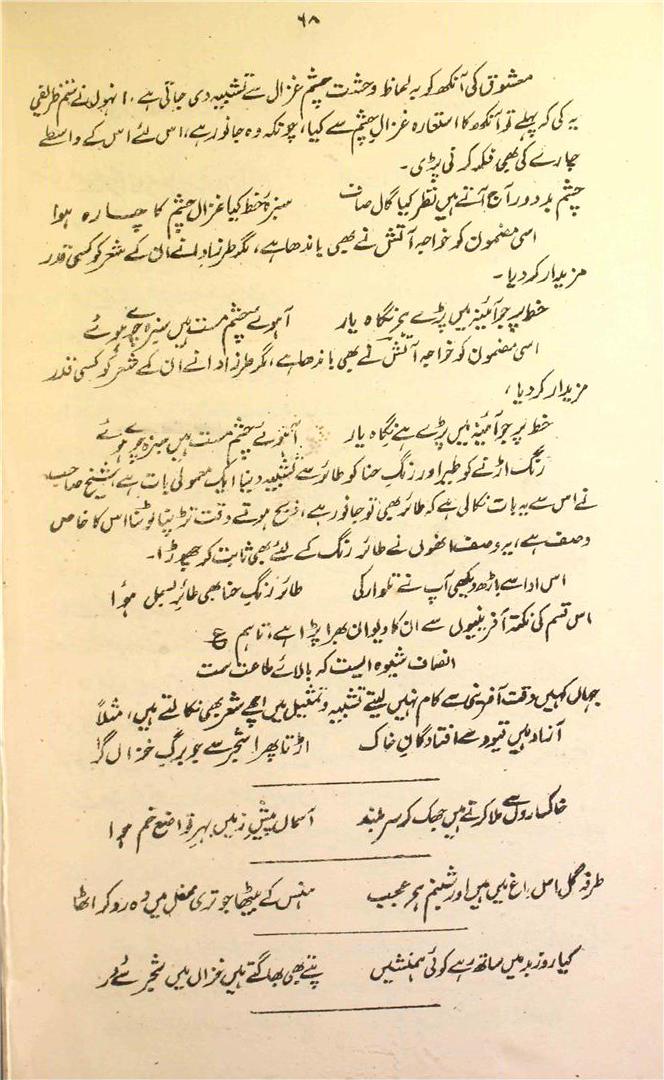 ۶۸
معشوق کی آنکھ کو بہ لحاظ وحشت چشم غزال سے تشبیہ دی جاتی ہے۔ انہوں نے ستم ظریفی
یہ کی کہ پہلے تو آنکھ کا استعارہ غزالِ چشم سے کیا، چونکہ وہ جانور ہے، اس لئے اس کے واسطے
چارے کی بھی فکر کرنی پڑی۔
چشم بد دور آج آتے ہیں نظر کیا گال صاف سبزۂ خط کیا غزال چشم کا چارہ ہوا
اسی مضمون کو خواجہ آتش نے بھی باندھا ہے، مگر طرز ادا نے ان کے شعر کو کسی قدر
مزیدار کر دیا۔
خط پر جو آئینہ میں پڑے ہے نگاہ یار آہوئے چشم مست ہیں سبزہ چرے ہوئے
اسی مضمون کو خواجہ آتش نے بھی باندھا ہے، مگر طرز ادا نے ان کے شعر کو کسی قدر
مزیدار کر دیا،
خط پر جو آئینہ میں پڑے ہے نگاہ یار آہوئے چشم مست ہیں سبزہ چرے ہوئے
رنگ اڑنے کو طیر اور رنگ حنا کو طائر سے تشبیہ دینا ایک معمولی بات ہے، شیخ صاحب
نے اس سے یہ بات نکالی ہے کہ طائر بھی تو جانور ہے، ذبح ہوتے وقت تڑپنا لوٹنا اس کا خاص
وصف ہے، یہ وصف انھوں نے طائر رنگ کے لئے بھی ثابت کر چھوڑا۔
اس ادا سے باڑھ دیکھی آپ نے تلوار کی طائر رنگِ حنا بھی طائرِ بسمل ہوا
اس قسم کی نکتہ آفرینیوں سے ان کا دیوان بھرا پڑا ہے، تاہم ع
انصاف شیوہ ایست کہ بالائے طاعت ست
جہاں کہیں دقت آفرینی سے کام نہیں لیتے تشبیہ و تمثیل میں اچھے شعر بھی نکالتے ہیں، مثلاً
آزاد ہیں قیود سے افتادگانِ خاک اڑتا پھرا شجر سے جو برگِ خزاں گرا
خاکساروں سے ملا کرتے ہیں جھک کر سر بلند آسماں پیشِ زمیں بہرِ تواضع خم ہوا
طرفہ گل اس باغ میں ہیں اور شبنم ہے عجیب ہنس کے بیٹھا جو تری محفل میں وہ رو کر اٹھا
کیا روزِ بد میں ساتھ رہے کوئی ہمنشیں پتے بھی بھاگتے ہیں خزاں میں شجر سے دور